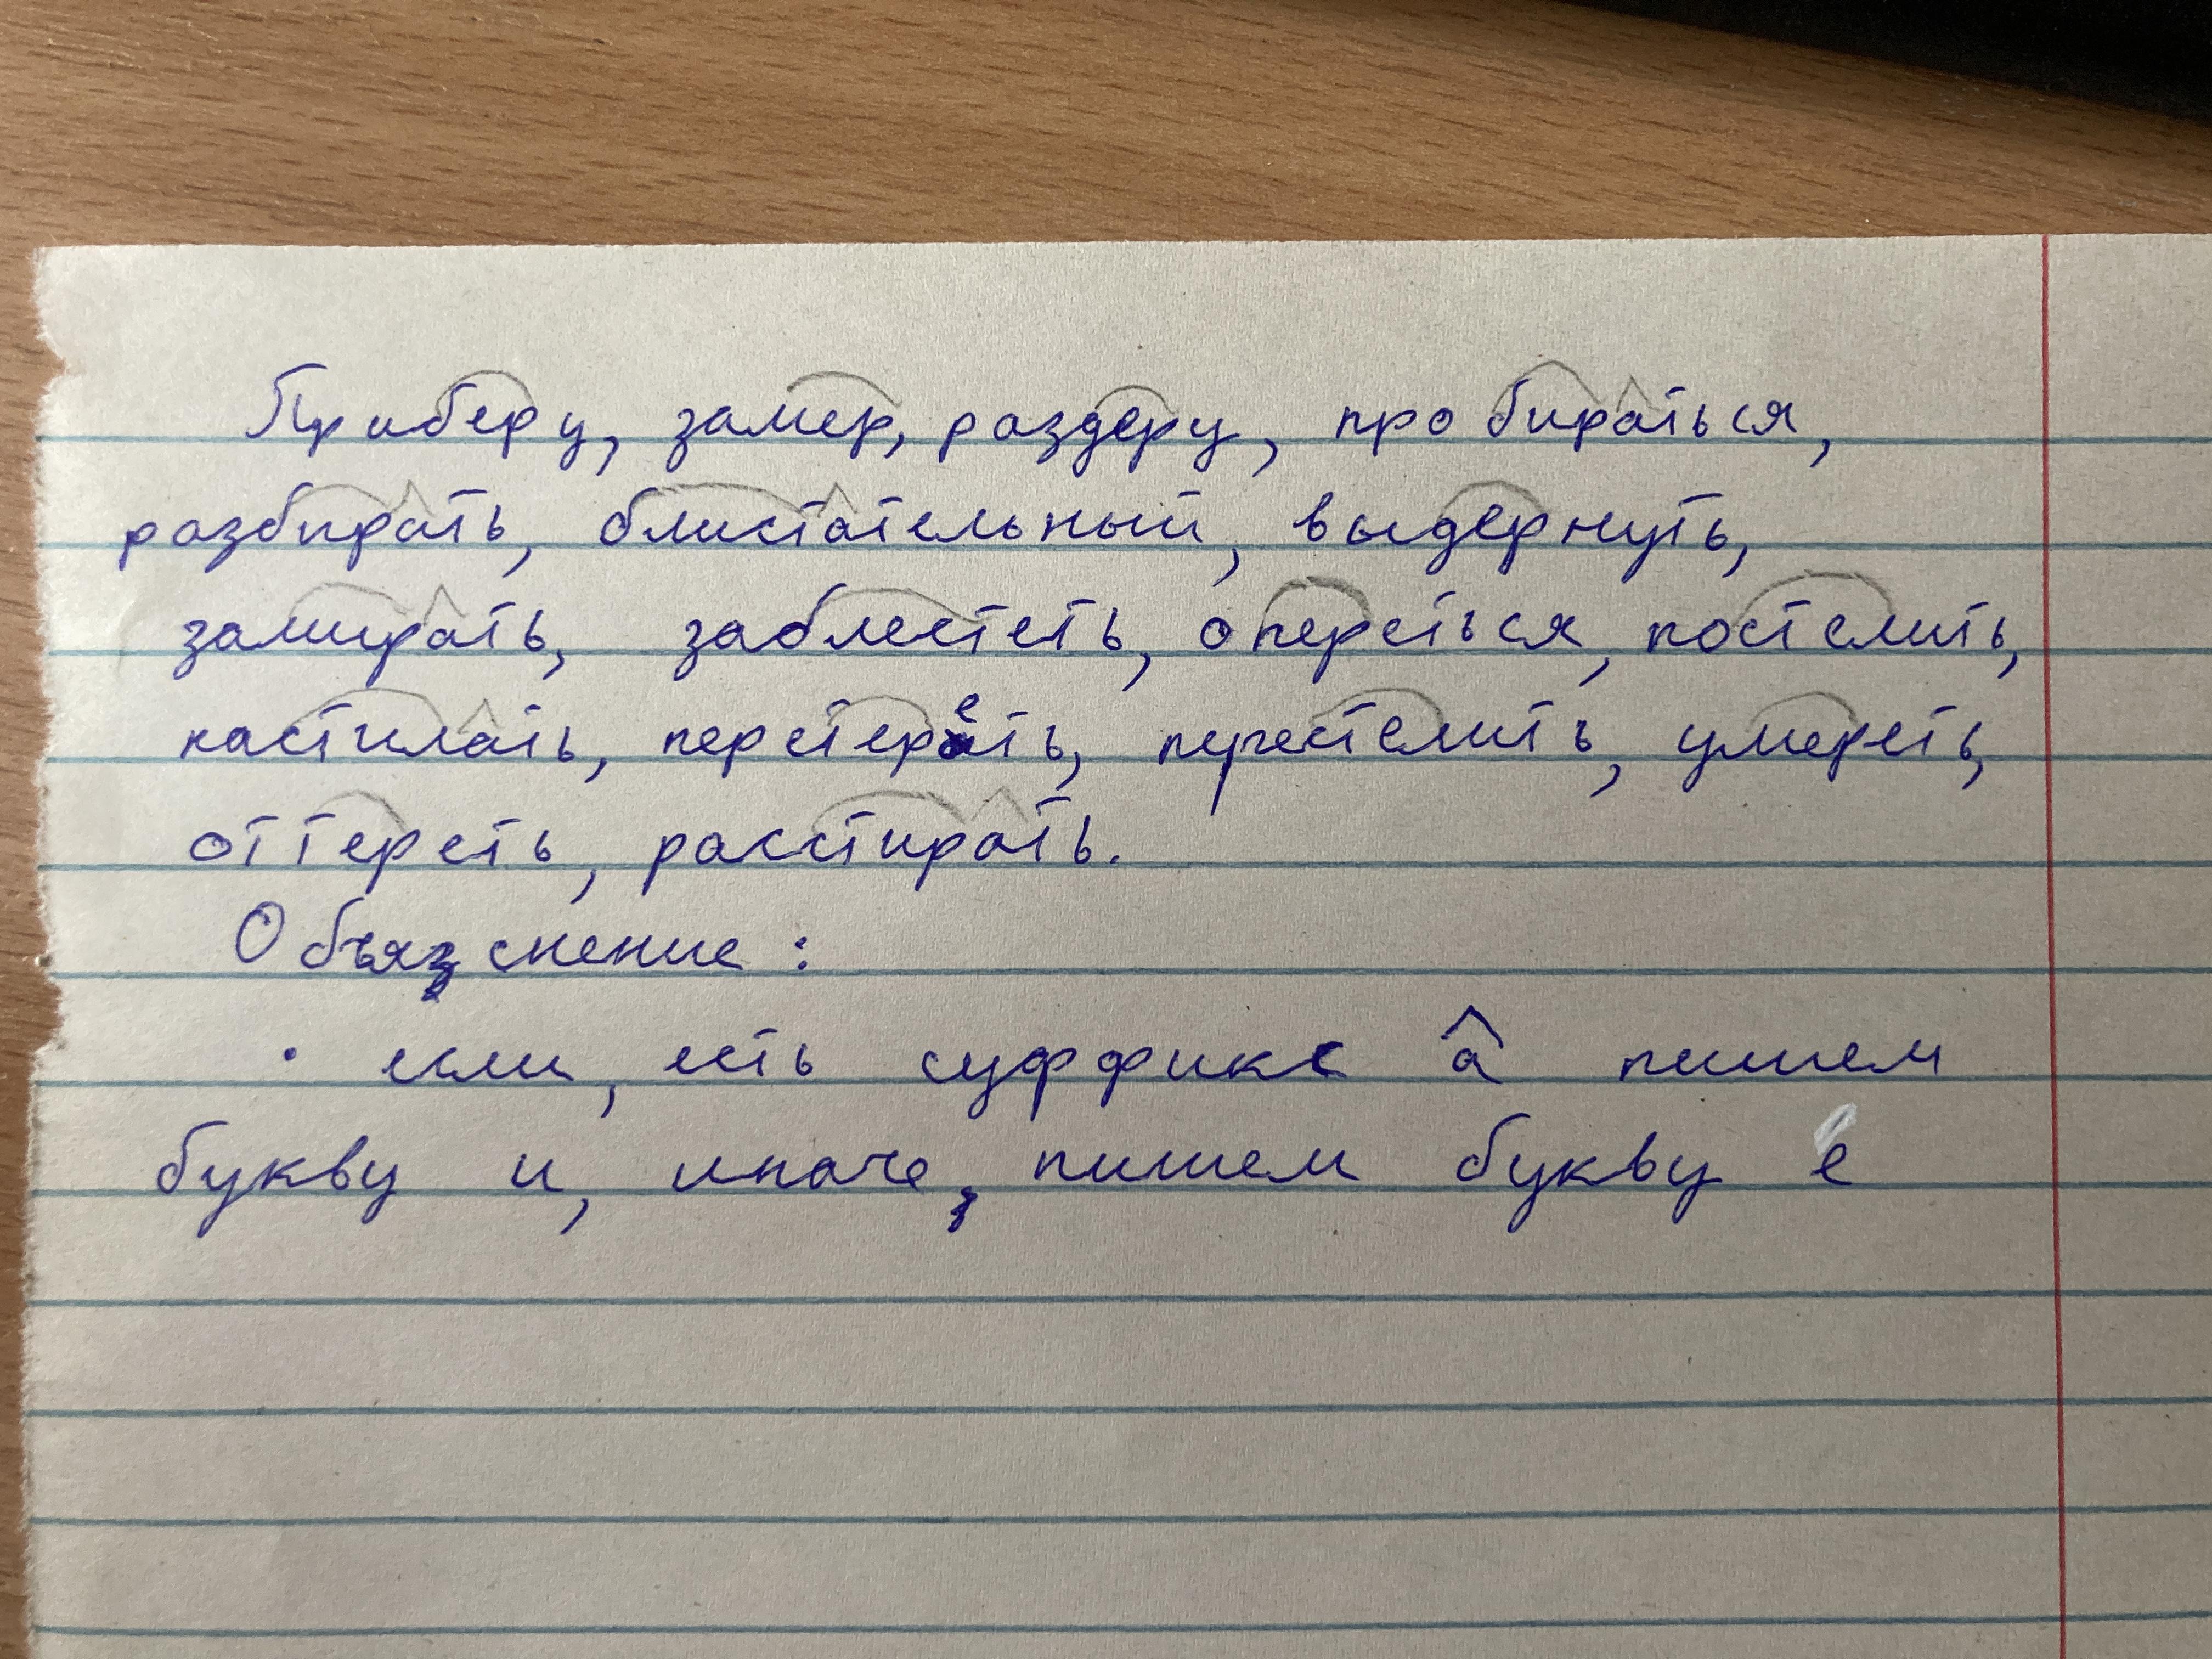 Приберу, замер, раздеру, пробираться,
разбирать, блистательный, выдернуть,
замирать, заблестеть, опереться, постелить,
настилать, перстереть, перестелить, умереть,
оттереть, расстирать.
Объяснение:
· если, есть суффикс а пишем
букву и, иначе, пишем букву е